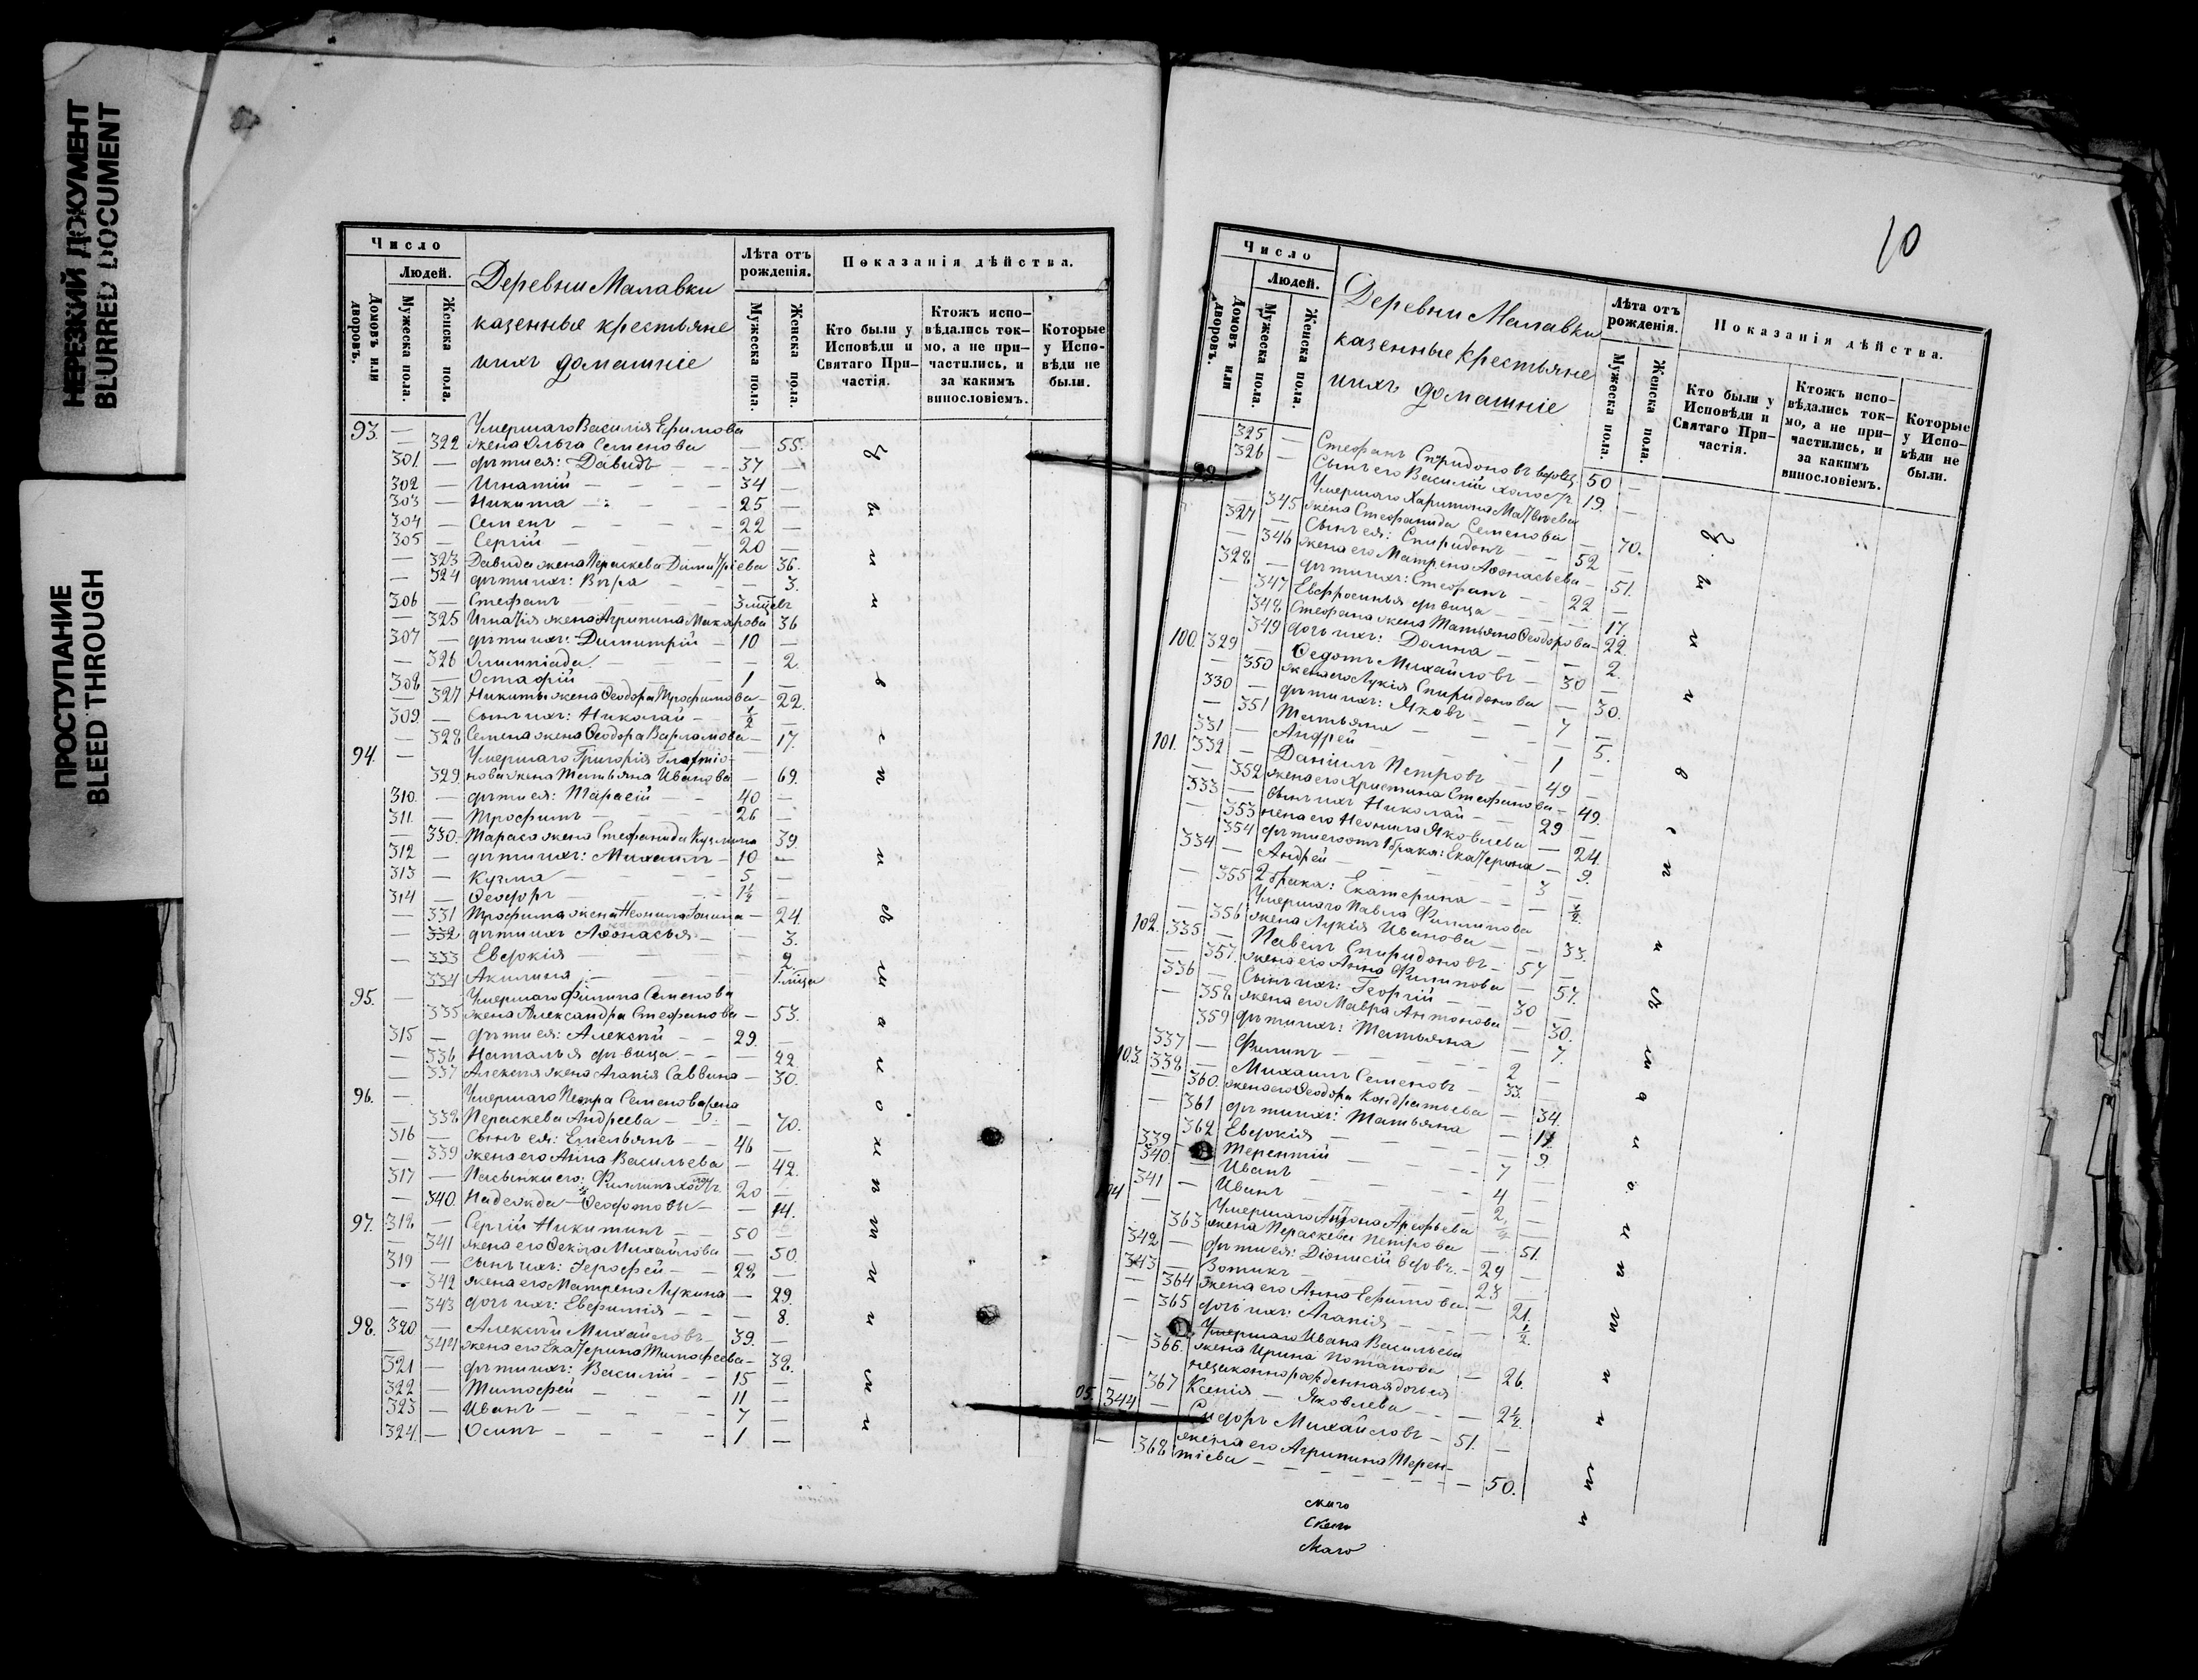 НЕРЕЗКИЙ ДОКУМЕНТ
BLURRED DOCUMENT
ПРОСТУПАНИЕ
BLEED THROUGH
Число
Людей.
Домовъ или дворовъ.
Мужеска пола.
Женска пола.
Деревни Малавки
казенные крестьяне
и ихъ домашніе
Лѣта отъ рожденія.
Мужеска пола.
Женска пола.
Показанія дѣйства.
Кто были у Исповѣди и Святаго Причастія.
Ктожъ исповѣдались токмо, а не причастились, и за какимъ винословіемъ.
Которые у Исповѣди не были.
93. — Умершаго Василія Ефимова
— 322 жена Ольга Семенова — 55.
301. — дѣти ея: Давидъ — 37 —
302 — Игнатій — 34 —
303 — Никита — 25 —
304 — Семенъ — 22 —
305 — Сергій — 20 —
— 323 Давида жена Параскева Димитріева 36.
— 324 дѣти ихъ: Вѣра — 3.
306 — Стефанъ — 3 мѣсць
— 325 Игнатія жена Агрипина Макарова 36
307 — дѣти ихъ: Димитрій — 10 —
— 326 Олимпіада — 2.
308 — Остафій — 1 —
— 327 Никиты жена Ѳеодора Трофимова — 22.
309. — Сынъ ихъ: Николай — 1/2 —
— 328 Семена жена Ѳеодора Варламова — 17.
94. — Умершаго Григорія
329 нова жена Татьяна Иванова — 69.
310. — дѣти ея: Тарасій — 40 —
311. — Трофимъ — 26 —
— 330. Тараса жена Стефанида Кузмина 39.
312 — дѣти ихъ: Михаилъ — 10 —
313 — Кузма — 5 —
314 — Ѳеодоръ — 1 1/2 —
— 331 Трофима жена Неонила — 24.
— 332 дѣти ихъ Аѳонасья — 3.
— 333 Евдокія — 2.
334 Акилина — 1 мѣсца
95. — Умершаго Филипа Семенова
335 жена Александра Стефанова — 53.
315 — дѣти ея: Алексѣй — 29. —
— 336 Наталья дѣвица — 22.
— 337 Алексѣя жена Агапія Саввина — 30.
96. — Умершаго Петра Семенова жена
— 338 Параскева Андреева — 70.
316 — Сынъ ея: Емельянъ — 46 —
— 339 жена его Анна Васильева — 42.
317 — Пасынки его: Филиппъ холостъ 20 —
— 340. Надежда — Ѳедотовы — 14.
97. 318 — Сергій Никитинъ — 50 —
— 341 жена его Ѳекла Михайлова — 50.
319 — Сынъ ихъ: Герофей — 28 —
— 342 жена его Матрена Лукина — 29.
— 343 дочь ихъ: Евфимія — 8.
98. 320 — Алексѣй Михайловъ — 39. —
— 344 жена его Екатерина Тимофеева — 38.
321 — дѣти ихъ: Василій — 15 —
322 — Тимофей — 11 —
323 — Иванъ — 7 —
324. — Осипъ — 1 —
10
Число
Людей.
Домовъ или дворовъ.
Мужеска пола.
Женска пола.
Деревни Малавки
казенные крестьяне
и ихъ домашніе
Лѣта отъ рожденія.
Мужеска пола.
Женска пола.
Показанія дѣйства.
Кто были у Исповѣди и Святаго Причастія.
Ктожъ исповѣдались токмо, а не причастились, и за какимъ винословіемъ.
Которые у Исповѣди не были.
325 — Стефанъ Спиридоновъ вдовец 50 —
326 — Сынъ его Василій холостъ 19. —
99 Умершаго Харитона Матвѣева
— 345 жена Стефанида Семенова — 70.
327 — Сынъ ея: Спиридонъ — 52 —
— 346 жена его Матрена Аѳонасьева — 51.
328 — дѣти ихъ: Стефанъ — 22 —
— 347 Евфросинья дѣвица — 17.
348 Стефана жена Татьяна Ѳеодорова — 22.
349 дочь ихъ: Домна — 2.
100. 329 — Ѳедотъ Михайловъ — 30 —
— 350 жена его Лукія Спиридонова — 30.
330 — дѣти ихъ: Яковъ — 7 —
— 351 Татьяна — 5.
331 — Андрей — 1 —
101. 332 — Даніилъ Петровъ — 49 —
— 352 жена его Христина Стефанова — 49.
333 — Сынъ ихъ Николай — 29 —
— 353 жена его Неонила Яковлева — 24.
354 дѣти его отъ 1 брака: Екатерина — 9.
334 — Андрей — 3 —
— 355 2 брака: Екатерина — 1/2.
Умершаго Павла Филиппова
— 356 жена Лукія Иванова — 33.
102. 335 — Павелъ Спиридоновъ — 57 —
— 357. жена его Анна Филипова — 57.
336 — Сынъ ихъ: Георгій — 30 —
— 358 жена его Мавра Антонова — 30.
359 дѣти ихъ: Татьяна — 7.
337 — Филипъ — 2 —
103. 338 — Михаилъ Семеновъ — 33. —
— 360. жена его Ѳеодора Кондратьева — 34.
— 361 дѣти ихъ: Татьяна — 11.
362 Евдокія — 9.
339 — Терентій — 7 —
340 — Иванъ — 4 —
341 — Иванъ — 2. —
104 — Умершаго Антона Арефьева
363 жена Параскева Петрова — 51.
342 — дѣти ея: Діонисій вдовъ. — 29 —
343 — Зотикъ — 23 —
— 364 жена его Анна Ефимова — 21.
— 365 дочь ихъ: Агапія — 1/2.
Умершаго Ивана Васильева
— 366. жена Ирина Потапова — 26.
незаконнорожденная дочь ея
— 367 Ксенія — Яковлева — 2 1/2.
05. 344 — Сидоръ Михайловъ — 51. —
— 368 жена его Агрипина Терентіева — 50.